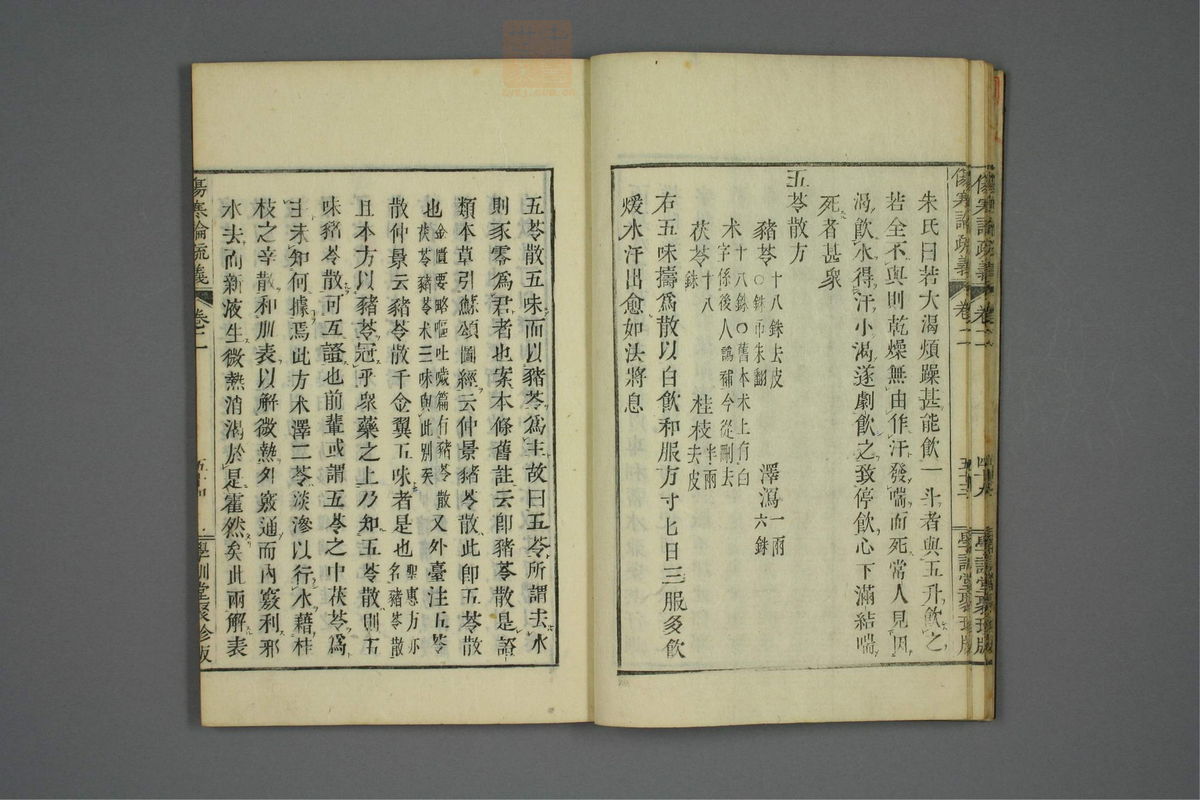 朱氏曰若大渴煩躁甚能飲一斗者與五升飲之
若全不與則乾燥無由作汗發喘而死常人見因
渴飲水得汗小渴遂劇飲之致停飲心下滿結喘
死者甚衆
五苓散方
豬苓十八銖去皮〇銖而朱翻 澤瀉一兩六銖
术十八銖〇舊本术上有白字係後人譌補今從刪去
茯苓十八銖 桂枝半兩去皮
右五味擣爲散以白飲和服方寸匕日三服多飲
煖水汗出愈如法將息
傷寒論疏義 卷二 五十三 學訓堂聚珍版
五苓散五味而以豬苓爲主故曰五苓所謂去水
則豕零爲君者也案本條舊註云卽豬苓散是證
類本草引蘇頌圖經云仲景豬苓散此卽五苓散
也金匱要略嘔吐噦篇有豬苓散茯苓豬苓术三味與此別矣又外臺注五苓
散仲景云豬苓散千金翼五味者是也聖惠方亦名豬苓散
且本方以豬苓冠乎衆藥之上乃知五苓散則五
味豬苓散可互證也前輩或謂五苓之中茯苓爲
主未知何據焉此方术澤二苓淡滲以行水藉桂
枝之辛散和肌表以解微熱外竅通而內竅利邪
水去而新液生微熱消渴於是霍然矣此兩解表
傷寒論疏義 卷二 五十四 學訓堂聚珍版